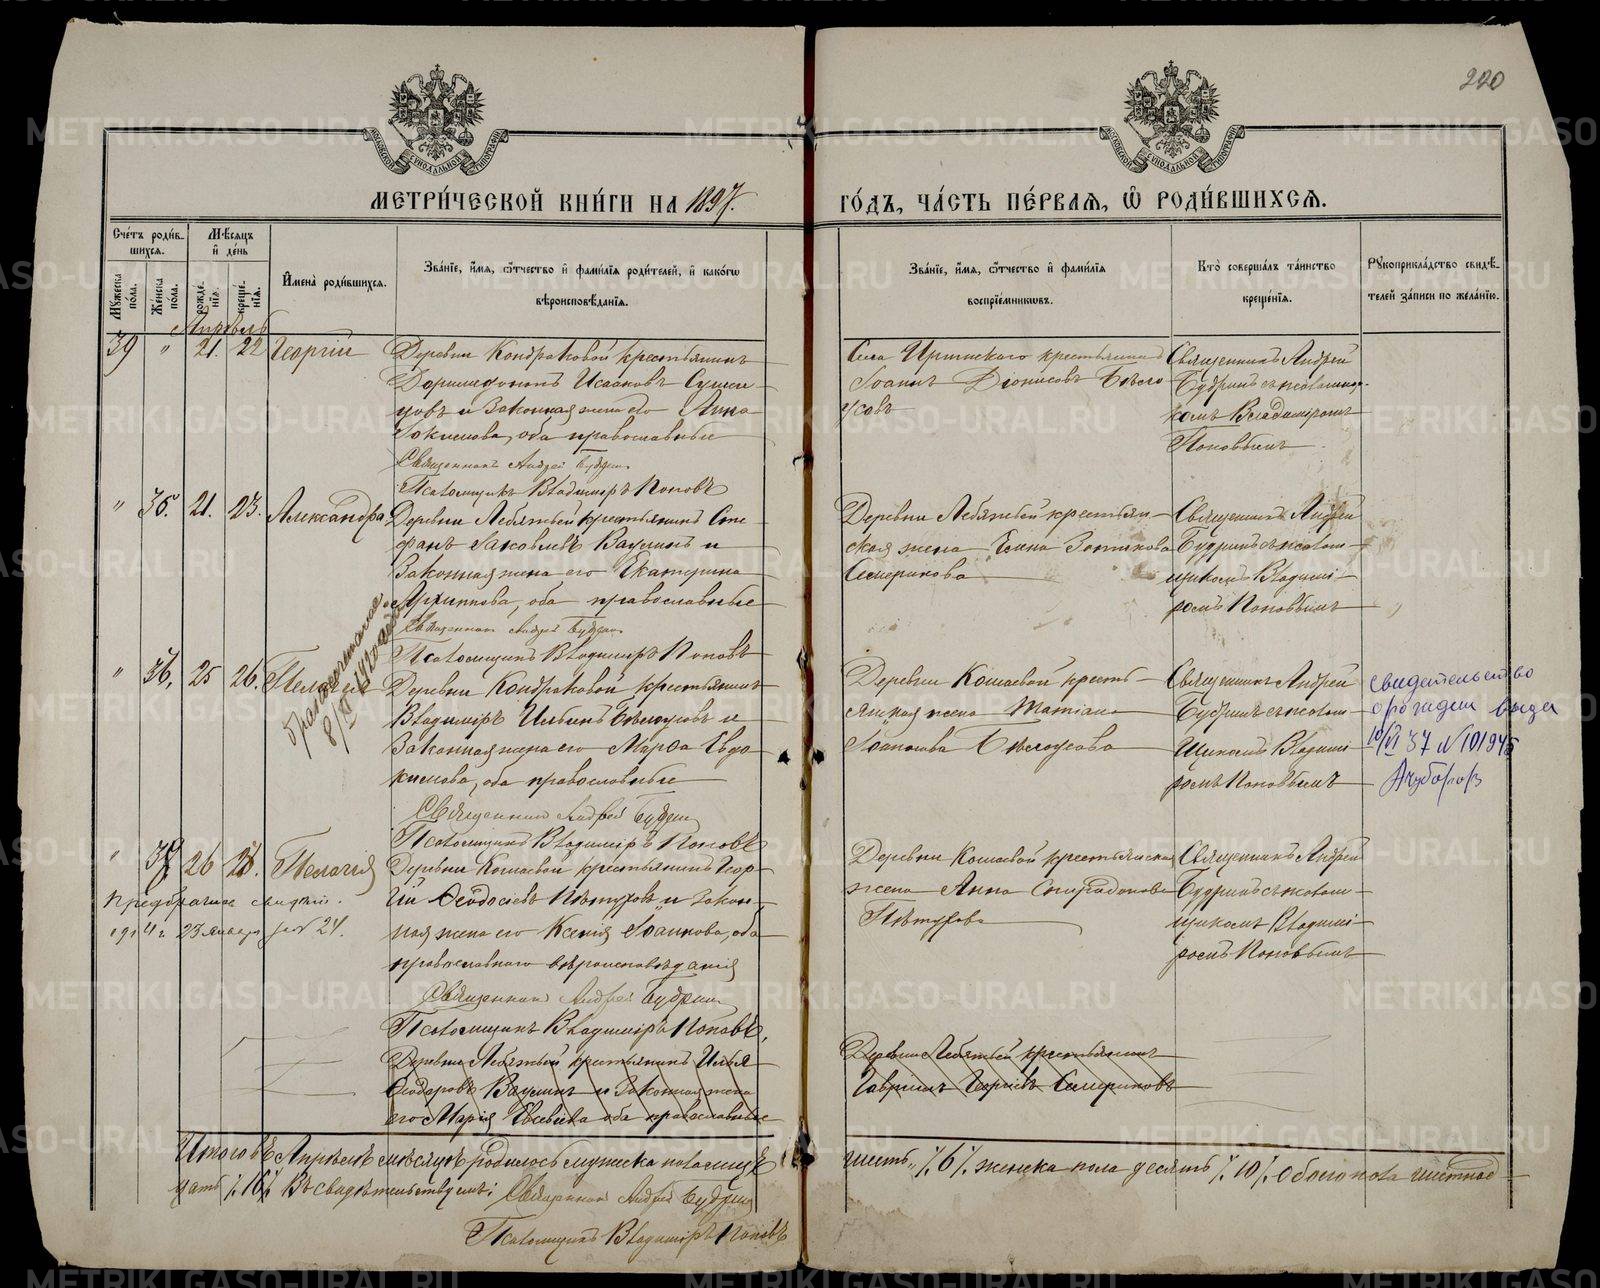 220
МЕТРИ́ЧЕСКОЙ КНИ́ГИ НА 1897.
ГО́ДЪ, ЧА́СТЬ ПЕ́РВАЯ, Ѽ РОДИ́ВШИХСѦ.
Сче́тъ роди́вшихся.
Мужеска по́ла.
Же́нска по́ла.
Мѣ́сяцъ и҆ де́нь
рожде́нїя.
креще́нїя.
И҆мена̀ роди́вшихся.
Зва́нїе, и҆́мя, ѻ҆́тчество и҆ фами́лїя роди́телей, и҆ како́гѡ
вѣроисповѣ́данїя.
Зва́нїе, и҆́мя, ѻ҆́тчество и҆ фами́лїя
воспрїе́мникѡвъ.
Кто̀ соверша́лъ та́инство
креще́нїя.
Рукоприкла́дство свидѣ́-
телей за́писи по жела́нїю.
Апрѣль
39 " 21. 22 Георгій
Деревни Кондраковой крестьянинъ
Доримедонтъ Исааковъ
и законная жена его Анна
Іакимова, оба православные
Священникъ Андрей Будринъ
Псаломщикъ Владиміръ Поповъ
Села Иргинскаго крестьянинъ
Іоаннъ Діонисовъ Бѣло
усовъ
Священникъ Андрей
Будринъ съ псаломщи-
комъ Владиміромъ
Поповымъ
" 35. 21. 23. Александра
Деревни Лебяжьей крестьянинъ Сте-
фанъ Іаковлевъ Ваулинъ и
законная жена его Екатерина
Архиппова, оба православные
Священникъ Андрей Будринъ
Псаломщикъ Владиміръ Поповъ
Деревни Лебяжьей крестьян-
ская жена Зотикова
Семерикова
Священникъ Андрей
Будринъ съ псалом-
щикомъ Владимі-
ромъ Поповымъ
" 36, 25 26. Пелагія
Деревни Кондраковой крестьянинъ
Владиміръ Ильинъ Бѣлоусовъ и
законная жена его Марѳа Евдо-
кимова, оба православные
Священникъ Андрей Будринъ
Псаломщикъ Владиміръ Поповъ
Деревни Кошаевой кресть-
янская жена
Іоаннова Бѣлоусова
Священникъ Андрей
Будринъ съ псалом-
щикомъ Владимі-
ромъ Поповымъ
свидетельство
о рождении выдан
10/VI 37 № 101945
" 37 26 28. Пелагія
Деревни Кошаевой крестьянинъ Геор-
гій Ѳеодосіевъ Пѣтуховъ и закон-
ная жена его Ксенія Іоаннова, оба
православнаго вѣроисповѣданія
Священникъ Андрей Будринъ
Псаломщикъ Владиміръ Поповъ,
Деревни Кошаевой крестьянская
жена Анна Спиридонова
Пѣтухова
Священникъ Андрей
Будринъ съ псалом-
щикомъ Владимі-
ромъ Поповымъ
1914 г. 23 января за № 24.
Деревни Лебяжьей крестьянинъ Илья
Ѳеодоровъ Ваулинъ и законная жена
его Марія Евсевіева оба православные
Деревни Лебяжьей крестьянинъ
Гавріилъ Георгіевъ Семериковъ
Итого въ Апрѣлѣ мѣсяцѣ родилось мужеска пола шесть ٪ 6 ٪ женска пола десять ٪ 10 ٪ обоего пола шестнад-
цать ٪ 16 ٪ Въ свидѣтельствуемъ: Священникъ Андрей Будринъ
Псаломщикъ Владиміръ Поповъ